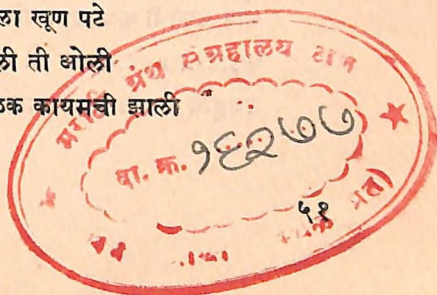 ला खूण पटे
ली ती ओली
ठक कायमची झाली
मराठी ग्रंथ संग्रहालय
वा. क्र. १६२७७
५१